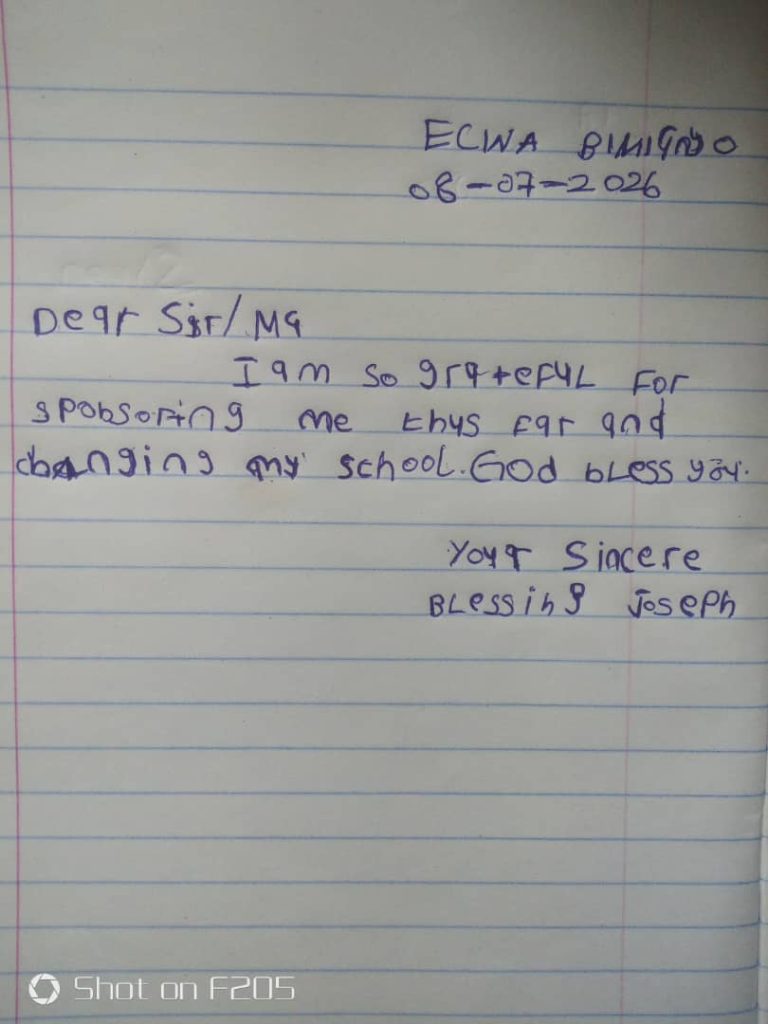 ECWA
08-07-2026
Dear Sir/Ma
I am so grateful for
sponsoring me thus far and
changing my school. God bless you.
Your Sincere
Blessing Joseph
Shot on F205